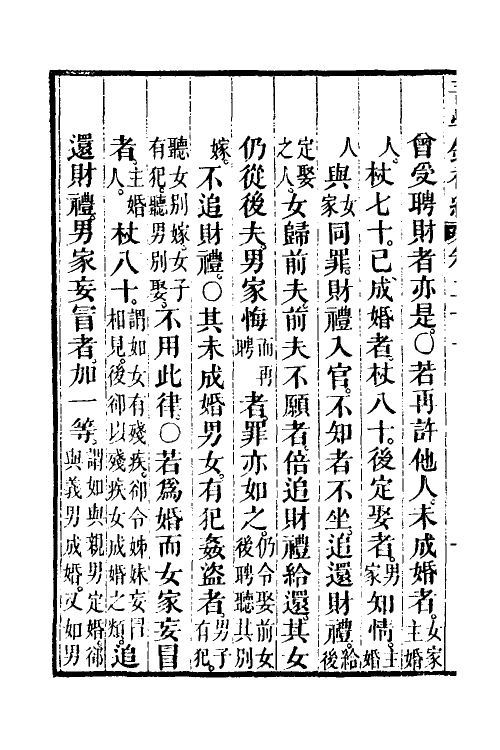 曾受聘財者亦是。○若再許他人。未成婚者。女家主婚
人。杖七十。已成婚者。杖八十。後定娶者。男家知情。主婚
人與女家同罪。財禮入官。不知者不坐。追還財禮。給後
定娶之人。女歸前夫。前夫不願者。倍追財禮給還。其女
仍從後夫。男家悔而再聘者。罪亦如之。仍令娶前女後聘聽其別
嫁。不追財禮。○其未成婚男女。有犯姦盜者。男子有犯。
聽女別嫁。女子有犯。聽男別娶。不用此律。○若爲婚而女家妄冒
者。主婚人。杖八十。謂如女有殘疾。卻令姊妹妄冒相見。後卻以殘疾女成婚之類。追
還財禮。男家妄冒者。加一等。謂如與親男定婚。卻與義男成婚。又如男